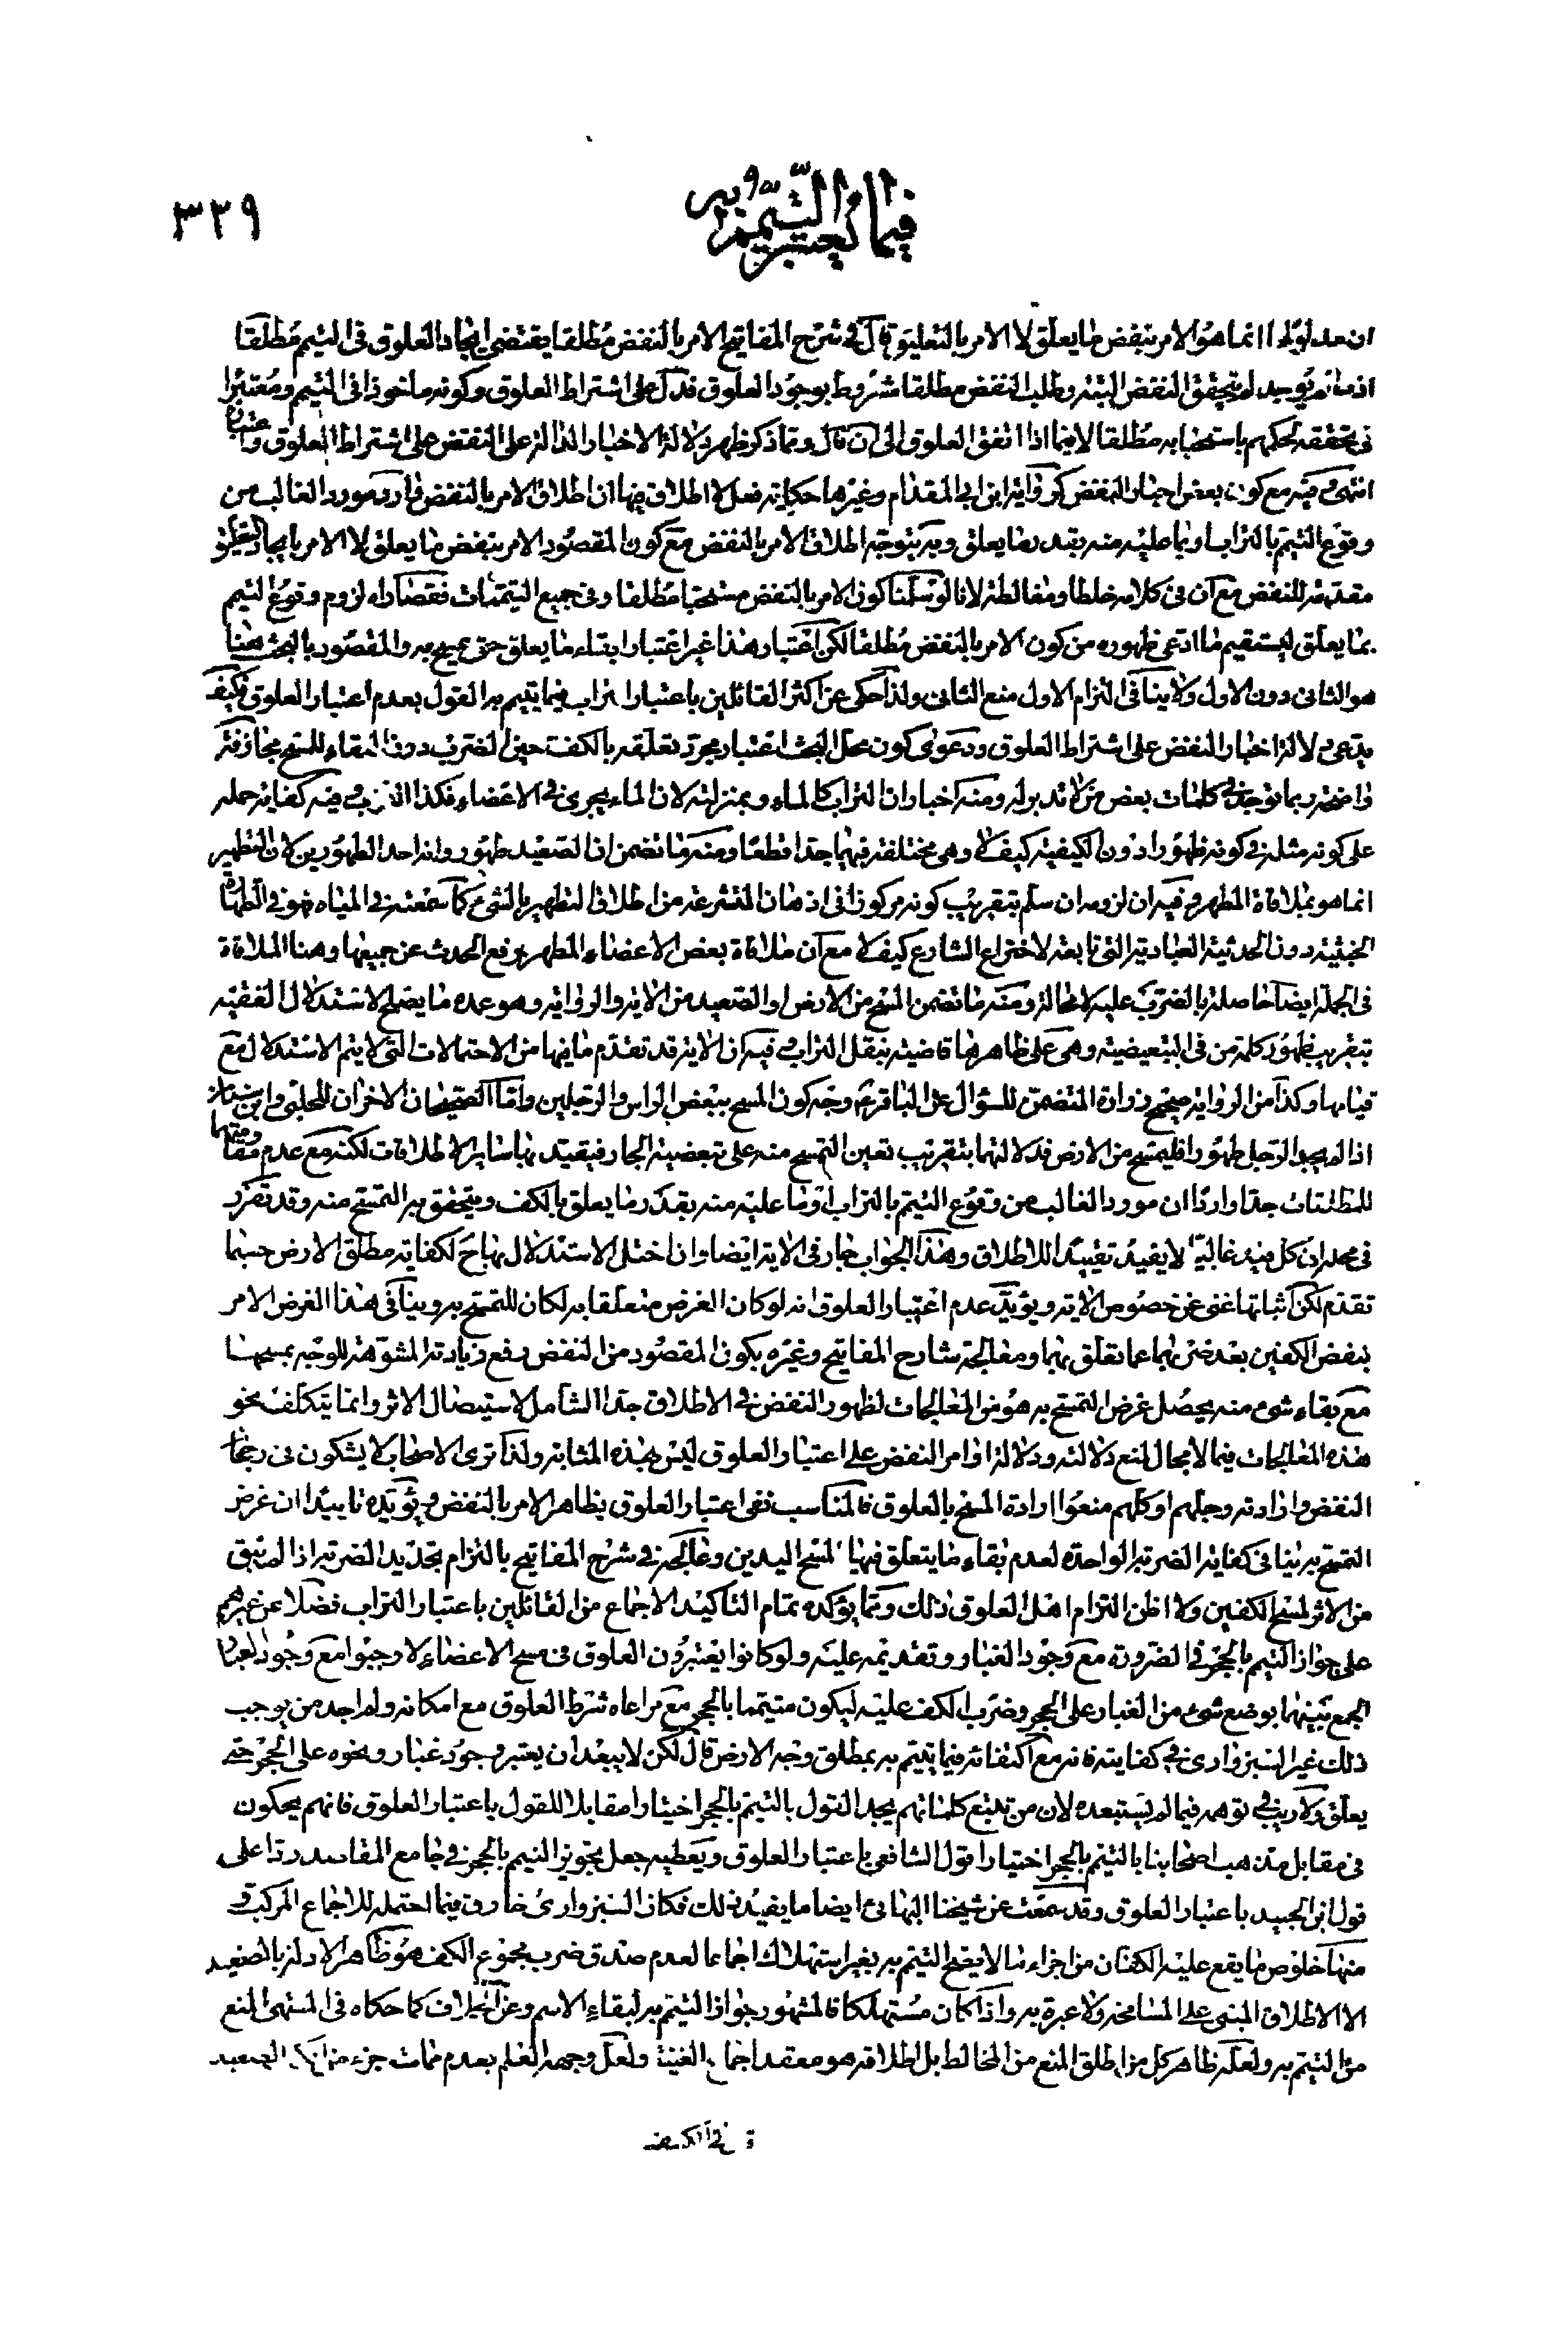 فيما يعتبر في التيمم وبه
٣٢٩
ان مدلولها انما هو الامر بنفض ما يعلق لا الامر بالتعليق قال في شرح المفاتيح الامر بالنفض مطلقا يقتضي ايجاد العلوق في التيمم مطلقا
اذ ما لم يوجد لم يتحقق النفض البتة وطلب النفض مطلقا مشروط بوجود العلوق فدل على اشتراط العلوق وكونه ماخوذا في التيمم ومعتبرا
في تحققه لحكمهم باستحبابه مطلقا لا فيما اذا اتفق العلوق الى ان قال ومما ذكر ظهر دلالة الاخبار الدالة على النفض على اشتراط العلوق واعتباره
انتهى وفيه مع كون بعض اخبار النفض كرواية ابن ابي المقدام وغيرها حكاية فعل لا اطلاق فيها ان اطلاق الامر بالنفض وارد مورد الغالب من
وقوع التيمم بالتراب او بما عليه منه بقدر ما يعلق وبه يتوجه اطلاق الامر بالنفض مع كون المقصود الامر بنفض ما يعلق لا الامر بايجاد التعليق
مقدمة للنفض مع ان في كلامه خلطا ومغالطة لانا لو سلمنا كون الامر بالنفض مستحبا مطلقا وفي جميع التيممات فقصاراه لزوم وقوع التيمم
بما يعلق ليستقيم ما ادعى ظهوره من كون الامر بالنفض مطلقا لكن اعتبار هذا غير اعتبار ابقاء ما يعلق حتى يمسح به والمقصود بالبحث هنا
هو الثاني دون الاول ولا ينافي التزام الاول منع الثاني ولذا حكى عن اكثر القائلين باعتبار التراب فيما يتيمم به القول بعدم اعتبار العلوق فكيف
يدعى دلالة اخبار النفض على اشتراط العلوق ودعوى كون محل البحث اعتبار مجرد تعلقه بالكف حين الضرب دون البقاء للمسح مجازفة
واضحة ربما توجد في كلمات بعض من لا تدبر له ومنه اخبار ان التراب كالماء وبمنزلته لان الماء يجري في الاعضاء فكذا التراب وفيه كفاية حمله
على كونه مثله في كونه طهورا دون الكيفية كيف لا وهي مختلفة فيهما جدا قطعا ومنه ما تضمن ان الصعيد طهور وانه احد الطهورين لان التطهير
انما هو بملاقاة المطهر وفيه ان لزومه ان سلم بتقريب كونه مركوزا في اذهان المتشرعة من اطلاق التطهير بالشيء كما سمعته في المياه فهو في الطهارة
الخبثية دون الحدثية العبادية التي تابعة لاختراع الشارع كيف لا مع ان ملاقاة بعض الاعضاء المطهر يرفع الحدث عن جميعها وهنا الملاقاة
في الجملة ايضا حاصلة بالضرب عليه لا محالة ومنه ما تضمن المسح من الارض او الصعيد من الاية والرواية وهو عمدة ما يصلح لاستدلال الفقيه
بتقريب ظهور كلمة من في التبعيضية وهي على ظاهرها قاضية بنقل التراب وفيه ان الاية قد تقدم ما فيها من الاحتمالات التي لا يتم الاستدلال مع
قيامها وكذا من الرواية صحيح زرارة المتضمن للسؤال عن الباقر ع وجه كون المسح ببعض الراس والرجلين واما الصحيحان الاخران للحلبي وابن سنان
اذا لم يجد الرجل طهورا فليمسح من الارض فدلالتهما بتقريب تعين التمسح منه على تبعضية الجار فيقيد بها سائر الاطلاقات لكنه مع عدم مقاومتهما
للمطلقات جدا واردان مورد الغالب من وقوع التيمم بالتراب او ما عليه منه بقدر ما يعلق بالكف ويتحقق به التمسح منه وقد تقرر
في محله ان كل قيد غالبي لا يفيد تقييدا للاطلاق وهذا الجواب جار في الاية ايضا وان اختل الاستدلال بها لكفاية مطلق الارض حسبما
تقدم لكن اثباتها غنى عن خصوص الاية ويؤيد عدم اعتبار العلوق انه لو كان الغرض متعلقا به لكان للتمسح به وينافي هذا الغرض الامر
بنفض الكفين بعد ضربهما عما تعلق بهما ومعالجة شارح المفاتيح وغيره بكون المقصود من النفض رفع زيادته المشوهة للوجه بمسحها
مع بقاء شيء منه يحصل غرض التمسح به هو من المعالجات لظهور النفض في الاطلاق جدا الشامل لاستيصال الاثر وانما يتكلف نحو
هذه المعالجات فيما لا مجال لمنع دلالته ودلالة اوامر النفض على اعتبار العلوق ليس بهذه المثابة ولذا ترى الاصحاب لا يشكون في رجحان
النفض وارادته وجلهم او كلهم منعوا ارادة المسح بالعلوق فالمناسب نفي اعتبار العلوق بظاهر الامر بالنفض ويؤيده تاييدا ان غرض
التمسح به ينافي كفاية الضربة الواحدة لعدم بقاء ما يتعلق فيها لمسح اليدين وعالجه في شرح المفاتيح بالتزام تجديد الضربة اذا لم يبق
من الاثر لمسح الكفين ولا اظن التزام اهل العلوق ذلك ومما يؤكده تمام التاكيد الاجماع من القائلين باعتبار التراب فضلا عن غيرهم
على جواز التيمم بالحجر في الضرورة مع وجود الغبار وتقديمه عليه ولو كانوا يعتبرون العلوق في مسح الاعضاء لاوجبوا مع وجود الغبار
الجمع بينهما بوضع شيء من الغبار على الحجر وضرب الكف عليه ليكون متيمما بالحجر مع مراعاة شرط العلوق مع امكانه ولم اجد من يوجب
ذلك غير السبزواري في كفايته فانه مع اكتفائه فيما يتيمم به بمطلق وجه الارض قال لكن لا يبعد ان يعتبر وجود غبار ونحوه على الحجر حتى
يعلق ولا ريب في توهمه فيما لم يستبعده لان من تتبع كلماتهم يجد القول بالتيمم بالحجر اختيارا مقابلا للقول باعتبار العلوق فانهم يحكون
في مقابل مذهب اصحابنا بالتيمم بالحجر اختيارا قول الشافعي باعتبار العلوق ويعطيه جعل تجويز التيمم بالحجر في جامع المقاصد ردا على
قول ابن الجنيد باعتبار العلوق وقد سمعت عن شيخنا البهائي ايضا ما يفيد ذلك فكان السبزواري خارق فيما احتمله للاجماع المركب و
منها خلوص ما يقع عليه الكفان من اجزاء ما لا يصح التيمم به بغير استهلاك اجماعا لعدم صدق ضرب مجموع الكف هو ظاهر الادلة بالصعيد
الا الاطلاق المبني على المسامحة ولا عبرة به واذا كان مستهلكا فالمشهور جواز التيمم به لبقاء الاسم وعن الخلاف كما حكاه في المنتهى المنع
من التيمم به ولعله ظاهر كل من اطلق المنع من المخالط بل اطلاقه هو معقد اجماع الغنية ولعل وجهه العلم بعدم مماسة جزء من الكف الصعيد